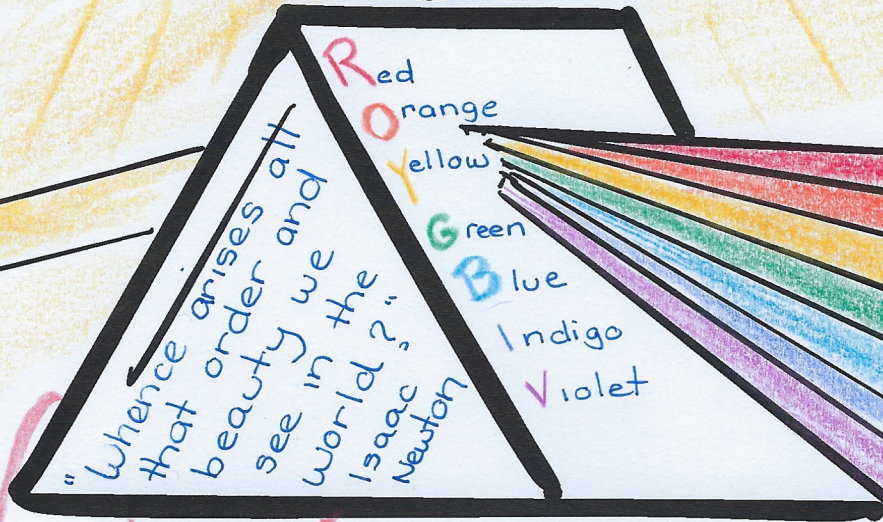 "Whence arises all
that order and
beauty we
see in the
world?"
Isaac
Newton
Red
Orange
Yellow
Green
Blue
Indigo
Violet